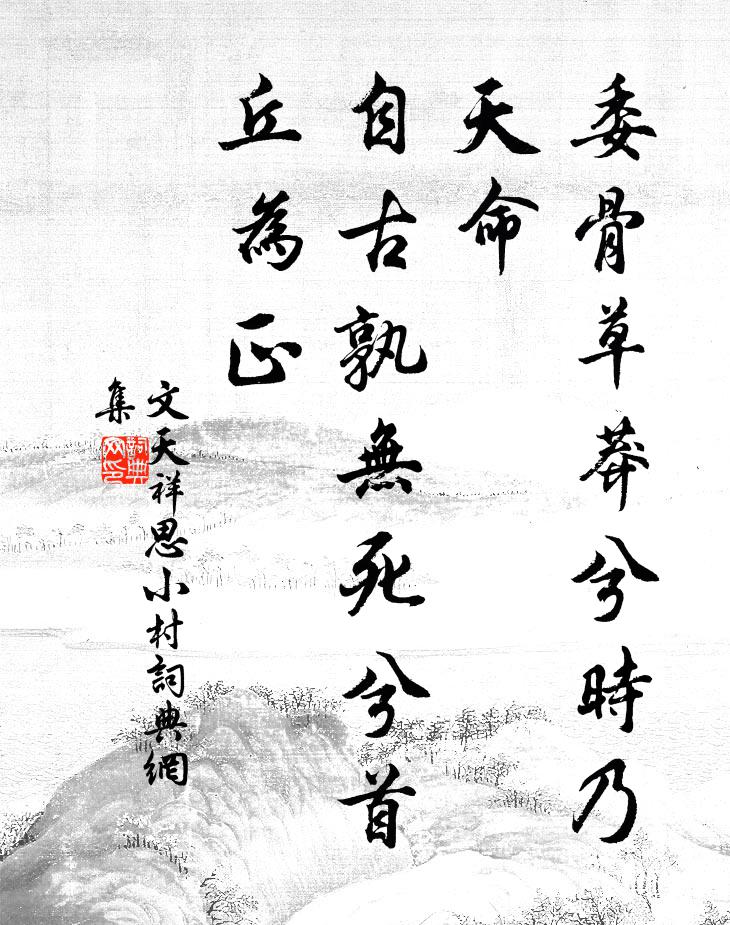 委骨草莽兮時乃
天命
自古孰無死兮首
丘為正
文天祥思小村詞典網
集
詞典
网印